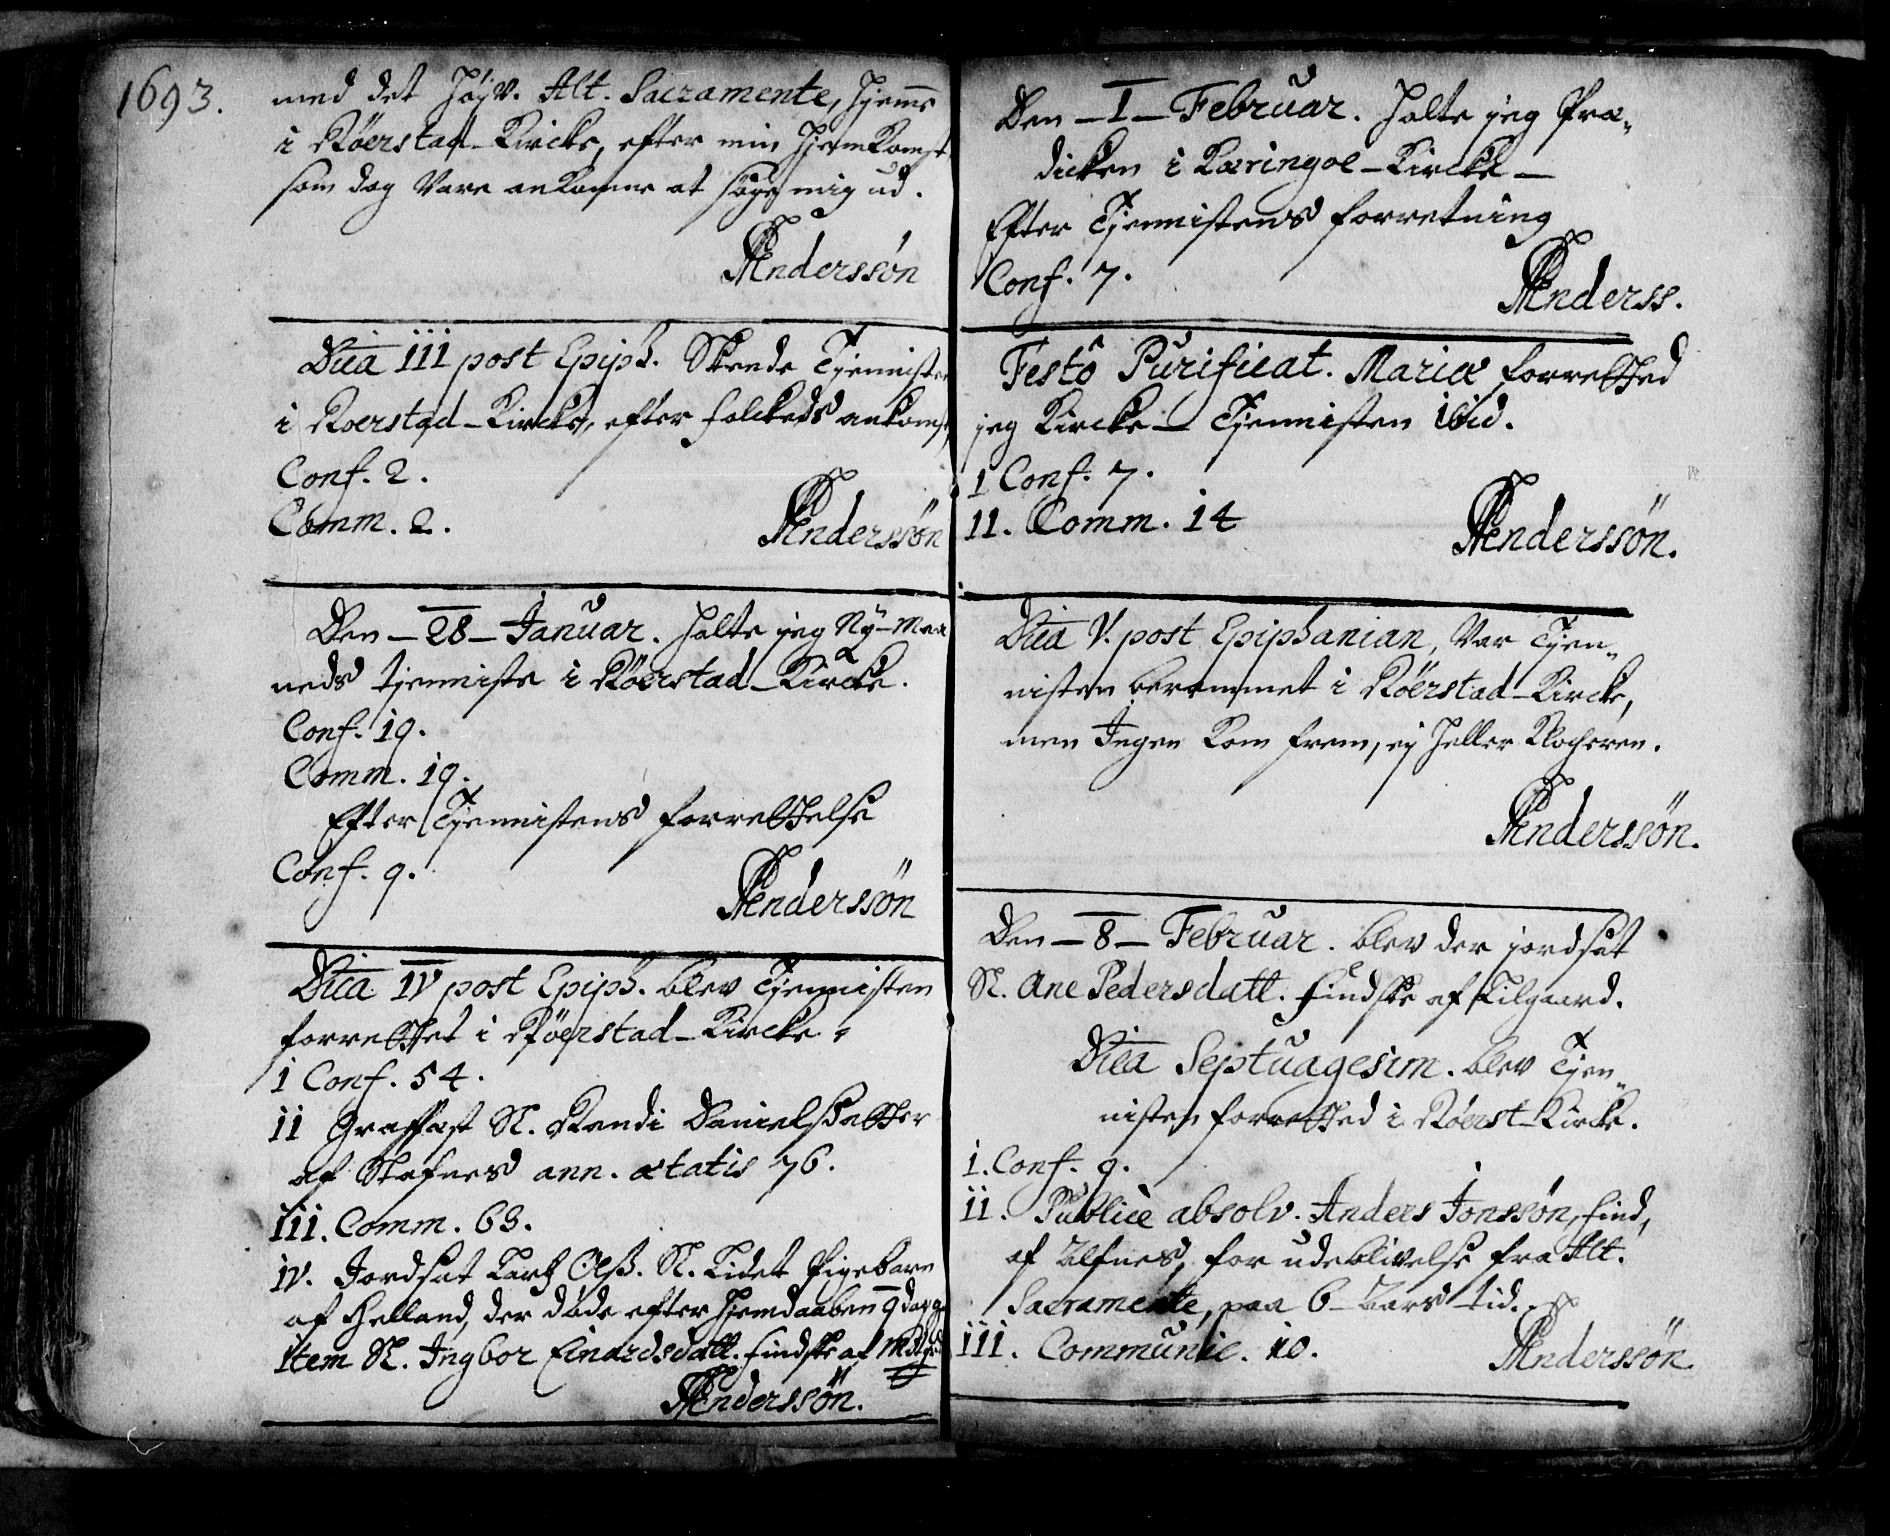 1693.
med det Høyv. Alt. Sacramente, hjemme
i Röerstad-Kircke, efter min hjemkomst
som dog vare ankomne at söge mig ud.
Anderssön
Dnca III post Epiph. Skeede Tjennisten
i Röerstad-Kircke, efter folckeds ankomst,
Conf. 2.
Comm. 2.
Anderssön
Den - 28 - Januar. holte jeg Ny-Maa
neds tjenniste i Röerstad-Kircke.
Conf. 19.
Comm. 19.
Efter Tjennistens forrettelse
Conf. 9.
Anderssön
Dnca IV post Epiph. blev Tjennisten
forrettet i Röerstad-Kircke.
i Conf. 54.
ii Graffæst S. Randi Danielsdatter
af Stafnes ann. ætatis 76.
iii. Comm. 63.
iv. Jordsat Olss. S. Lidet Pigebarn
af Helland, der döde efter hjemdaaben 9 dage
Item S. Ingbor Einardsdatt. Findske af
Anderssön.
Den - I - Februar. holte jeg Præ-
dicken i Kæringöe-Kircke -
Efter Tjennistens forretning
Conf. 7.
Anderss.
Festô Purificat. Mariæ forretted
jeg Kircke-Tjennisten ibid.
1 Conf. 7.
11. Comm. 14
Anderssön.
Dnca V. post Epiphanian, var Tjen-
nisten berammet i Röerstad-Kircke,
men Ingen kom frem, ej heller Klockeren.
Anderssön.
Den - 8 - Februar. blev der jordsat
S. Ane Pedersdatt. Findske af Kilgaard.
Dnca Septuagesim. blev Tjen-
nisten forretted i Röerst-Kircke.
i. Conf. 9.
ii. Publicè absolv. Anders Jonssön, Find,
af Ulfnes, for udeblivelse fra Alt.
Sacramente, paa 6-Aars tid.
iii. Communic. 10.
Anderssön